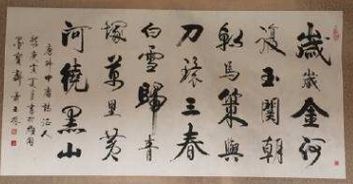 歲歲金河
復玉關朝
朝馬策與
刀環三春
白雪歸青
塚萬里黄
河繞黑山
唐柳中庸詩征人
怨庚寅